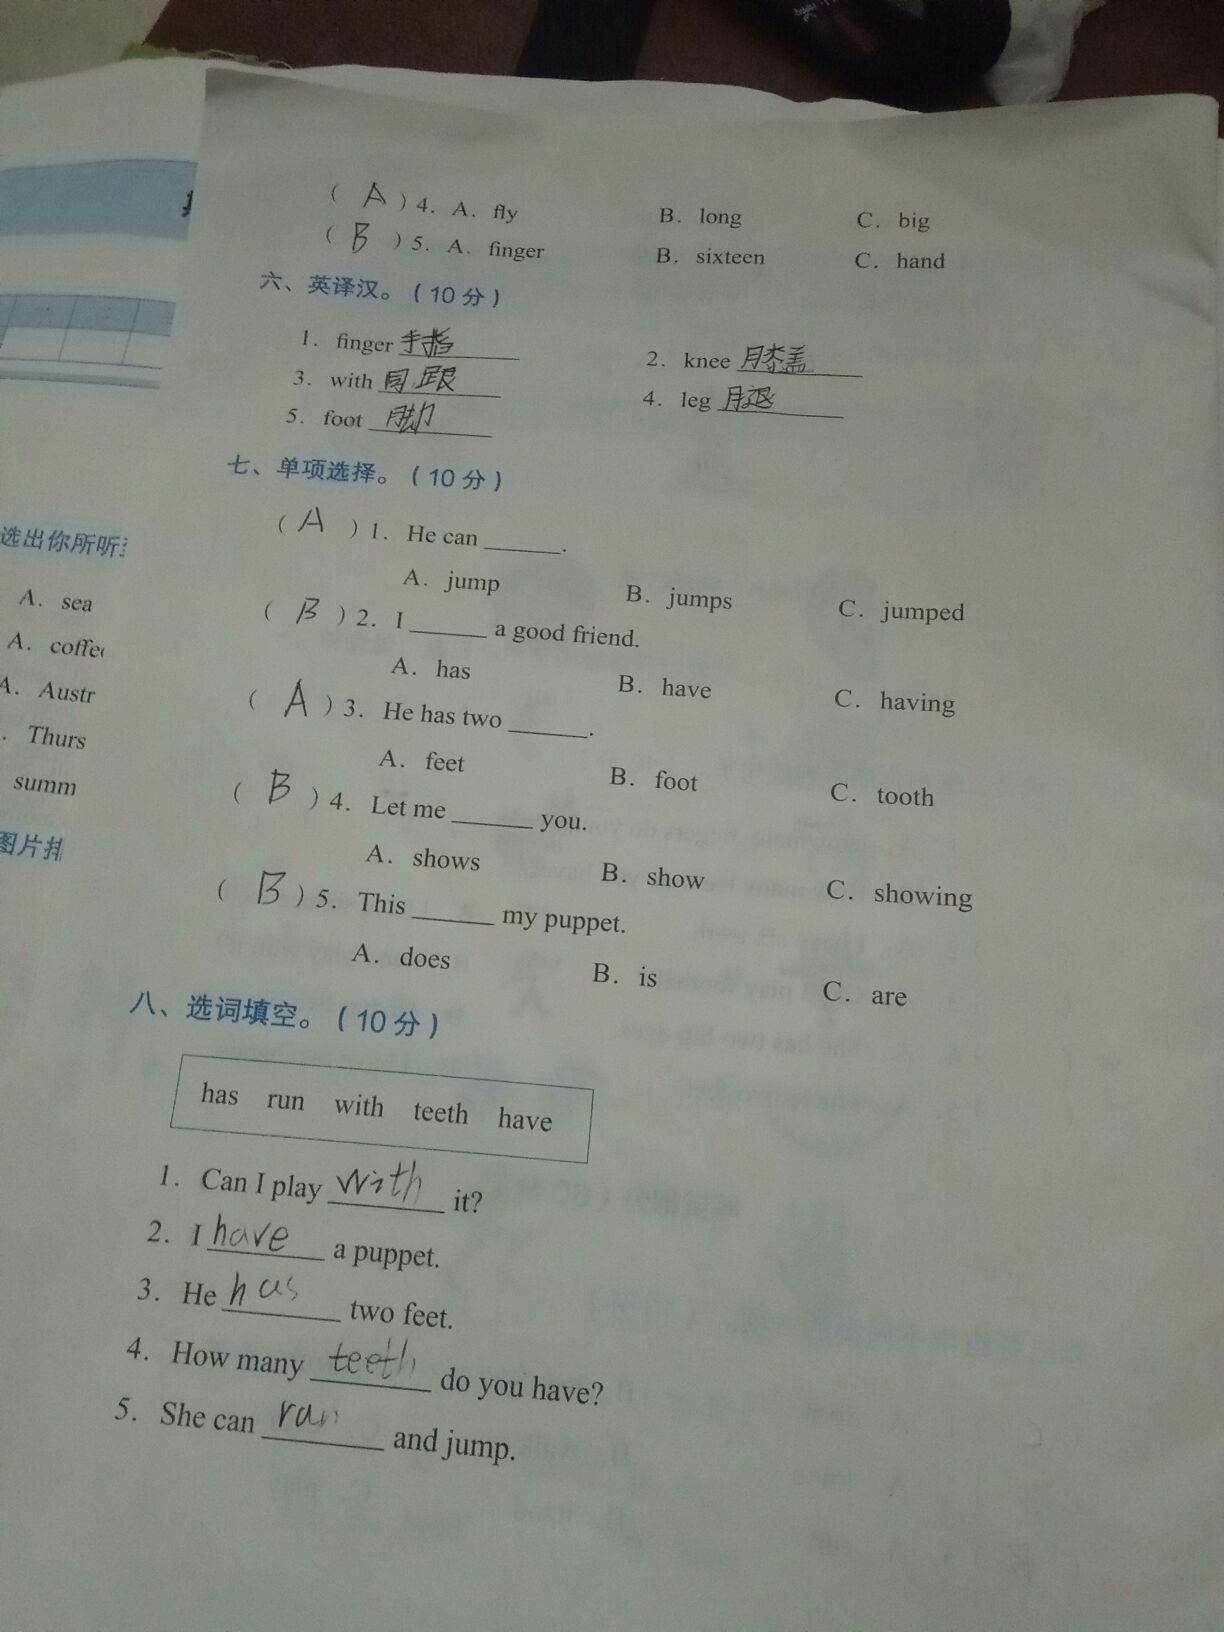 ( A ) 4. A. fly B. long C. big
( B ) 5. A. finger B. sixteen C. hand
六、英译汉。(10分)
1. finger 手指 2. knee 膝盖
3. with 跟 4. leg 腿
5. foot 脚
七、单项选择。(10分)
( A ) 1. He can ______.
A. jump B. jumps C. jumped
( B ) 2. I ______ a good friend.
A. has B. have C. having
( A ) 3. He has two ______.
A. feet B. foot C. tooth
( B ) 4. Let me ______ you.
A. shows B. show C. showing
( B ) 5. This ______ my puppet.
A. does B. is C. are
八、选词填空。(10分)
has run with teeth have
1. Can I play with it?
2. I have a puppet.
3. He has two feet.
4. How many teeth do you have?
5. She can run and jump.
选出你所听
A. sea
A. coffe
A. Austr
. Thurs
summ
图片排